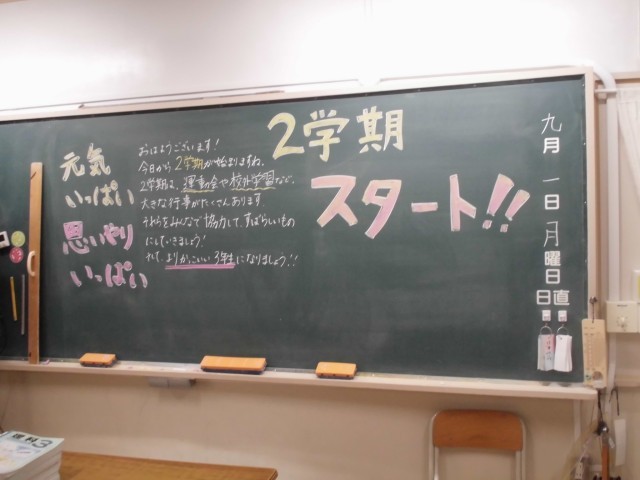 2学期
スタート!!
元気
いっぱい
思いやり
いっぱい
おはようございます!
今日から2学期が始まりますね。
2学期は、運動会や校外学習など、
大きな行事がたくさんあります。
それらをみんなで協力して、すばらしいもの
にしていきましょう!
そして、よりかっこいい3年生になりましょう!!
九月一日月曜日
日直
理科3